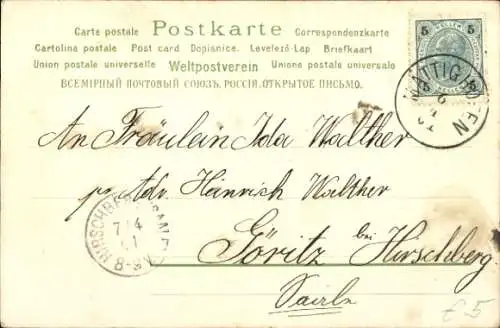 Carte postale Postkarte Correspondenzkarte
Cartolina postale Post card Dopisnice. Levelező-Lap Briefkaart
Union postale universelle Weltpostverein Unione postale universale
ВСЕМІРНЫЙ ПОЧТОВЫЙ СОЮЗЪ. РОССІЯ. ОТКРЫТОЕ ПИСЬМО.
5 5
MATTIGHOFEN
An Fräulein Ida Walther
pr Adr. Heinrich Walther
HIRSCHBERG SAALE
7/4
8-9V
Göritz bei Hirschberg
Saale
£5